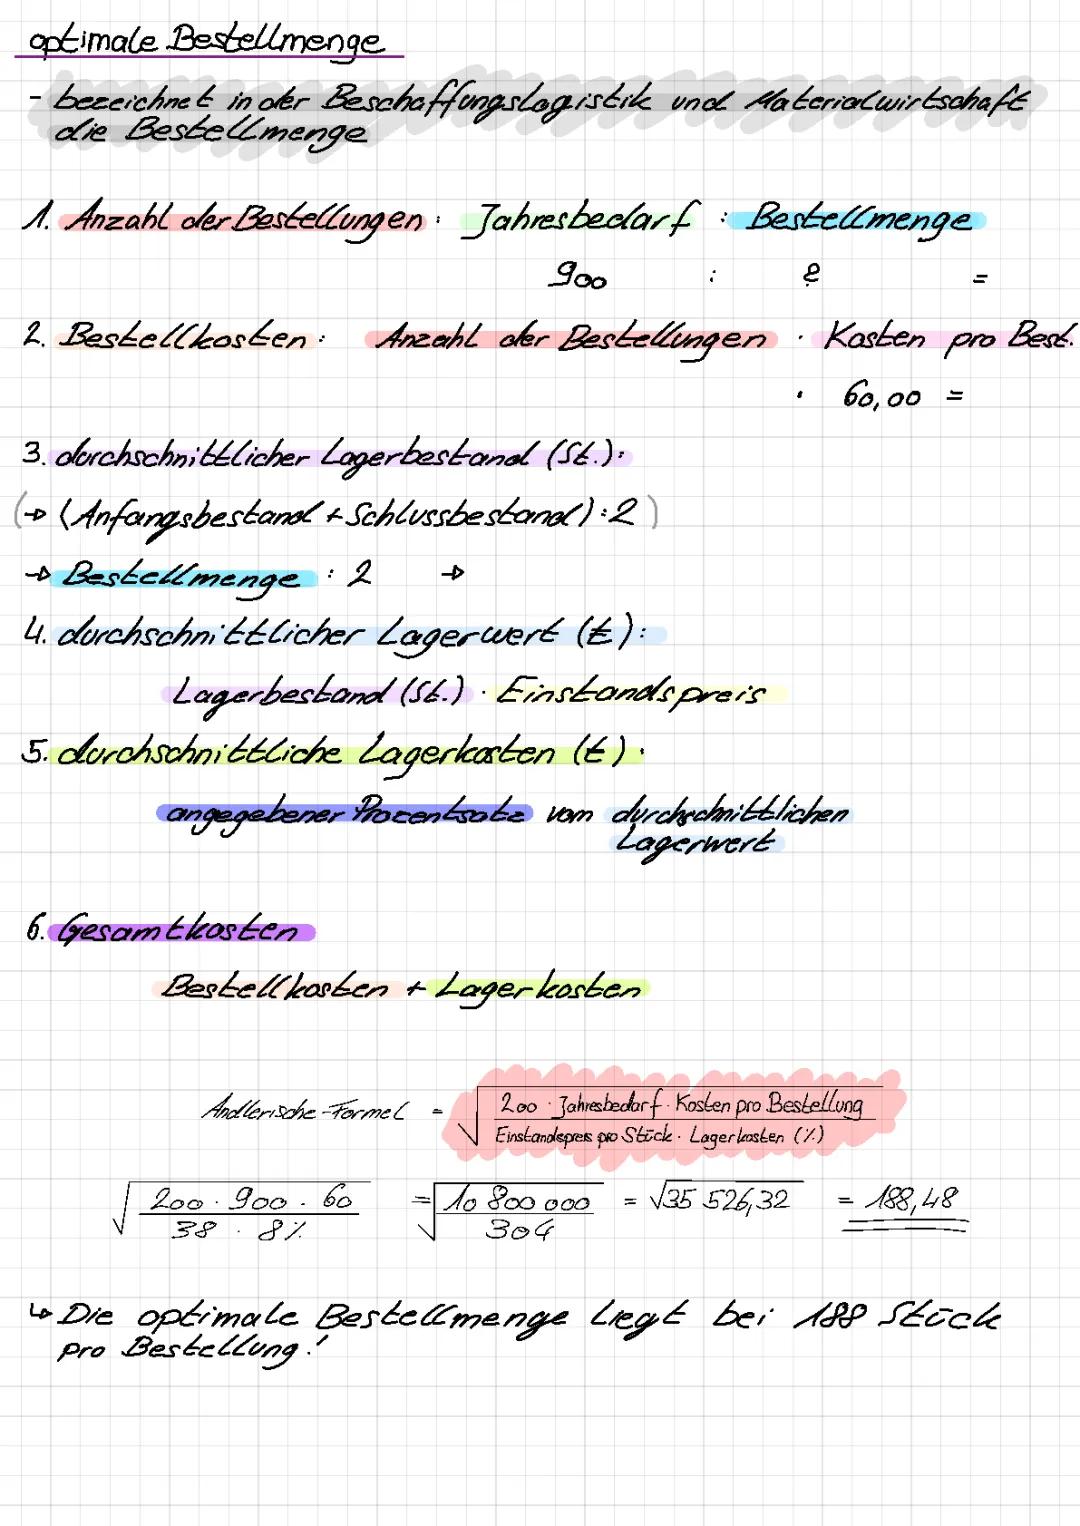 optimale Bestellmenge
- bezeichnet in der Beschaffungslogistik und Materialwirtschaft
die Bestellmenge
1. Anzahl der Bestellungen: Jahresbedarf : Bestellmenge
900 : ? =
2. Bestellkosten: Anzahl der Bestellungen · Kosten pro Best.
· 60,00 =
3. durchschnittlicher Lagerbestand (St.):
(→ (Anfangsbestand + Schlussbestand) : 2)
→ Bestellmenge : 2 →
4. durchschnittlicher Lagerwert (€):
Lagerbestand (St.) · Einstandspreis
5. durchschnittliche Lagerkosten (€):
angegebener Prozentsatz vom durchschnittlichen
Lagerwert
6. Gesamtkosten
Bestellkosten + Lagerkosten
Andlerische-Formel = √ 200 · Jahresbedarf · Kosten pro Bestellung
Einstandspreis pro Stück · Lagerkosten (%)
√ 200 · 900 · 60 = √ 10 800 000 = √35 526,32 = 188,48
38 · 8% 304
↳ Die optimale Bestellmenge liegt bei 188 Stück
pro Bestellung!